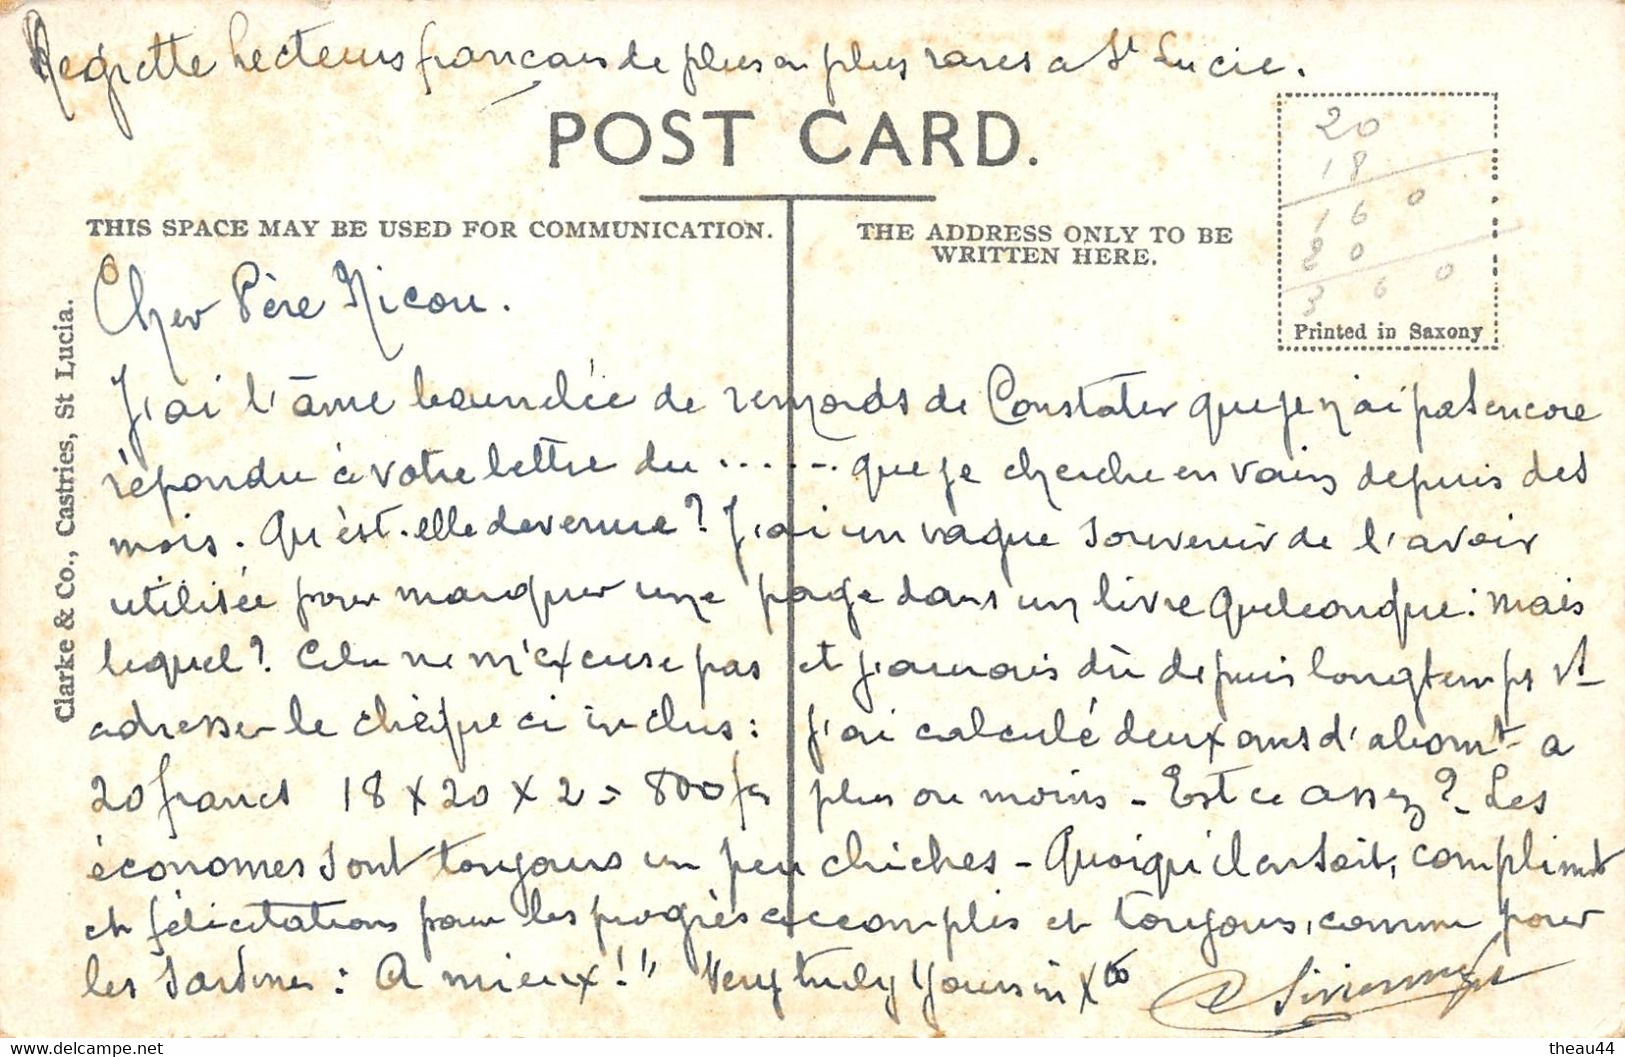 Regrette lecteurs français de plus en plus rares a St Lucie.
POST CARD.
THIS SPACE MAY BE USED FOR COMMUNICATION.
THE ADDRESS ONLY TO BE
WRITTEN HERE.
20
18
160
20
360
Printed in Saxony
Clarke & Co., Castries, St Lucia.
Cher Père Nicou.
J'ai l'âme bourrelée de remords de Constater que je n'ai pas encore
répondu à votre lettre du ...... que je cherche en vain depuis des
mois. Qu'est-elle devenue? J'ai un vague souvenir de l'avoir
utilisée pour marquer une page dans un livre quelconque: mais
lequel? Cela ne m'excuse pas et j'aurais dû depuis longtemps vs
adresser le chèque ci inclus: j'ai calculé deux ans d'abomt a
20 francs 18 x 20 x 2 = 800 frs plus ou moins - Est ce assez? - Les
économes sont toujours un peu chiches - Quoiqu'il en soit, complimts
et félicitations pour les progrès accomplis et toujours, comme pour
les : A mieux!" Very truly Yours in Xto
theau44